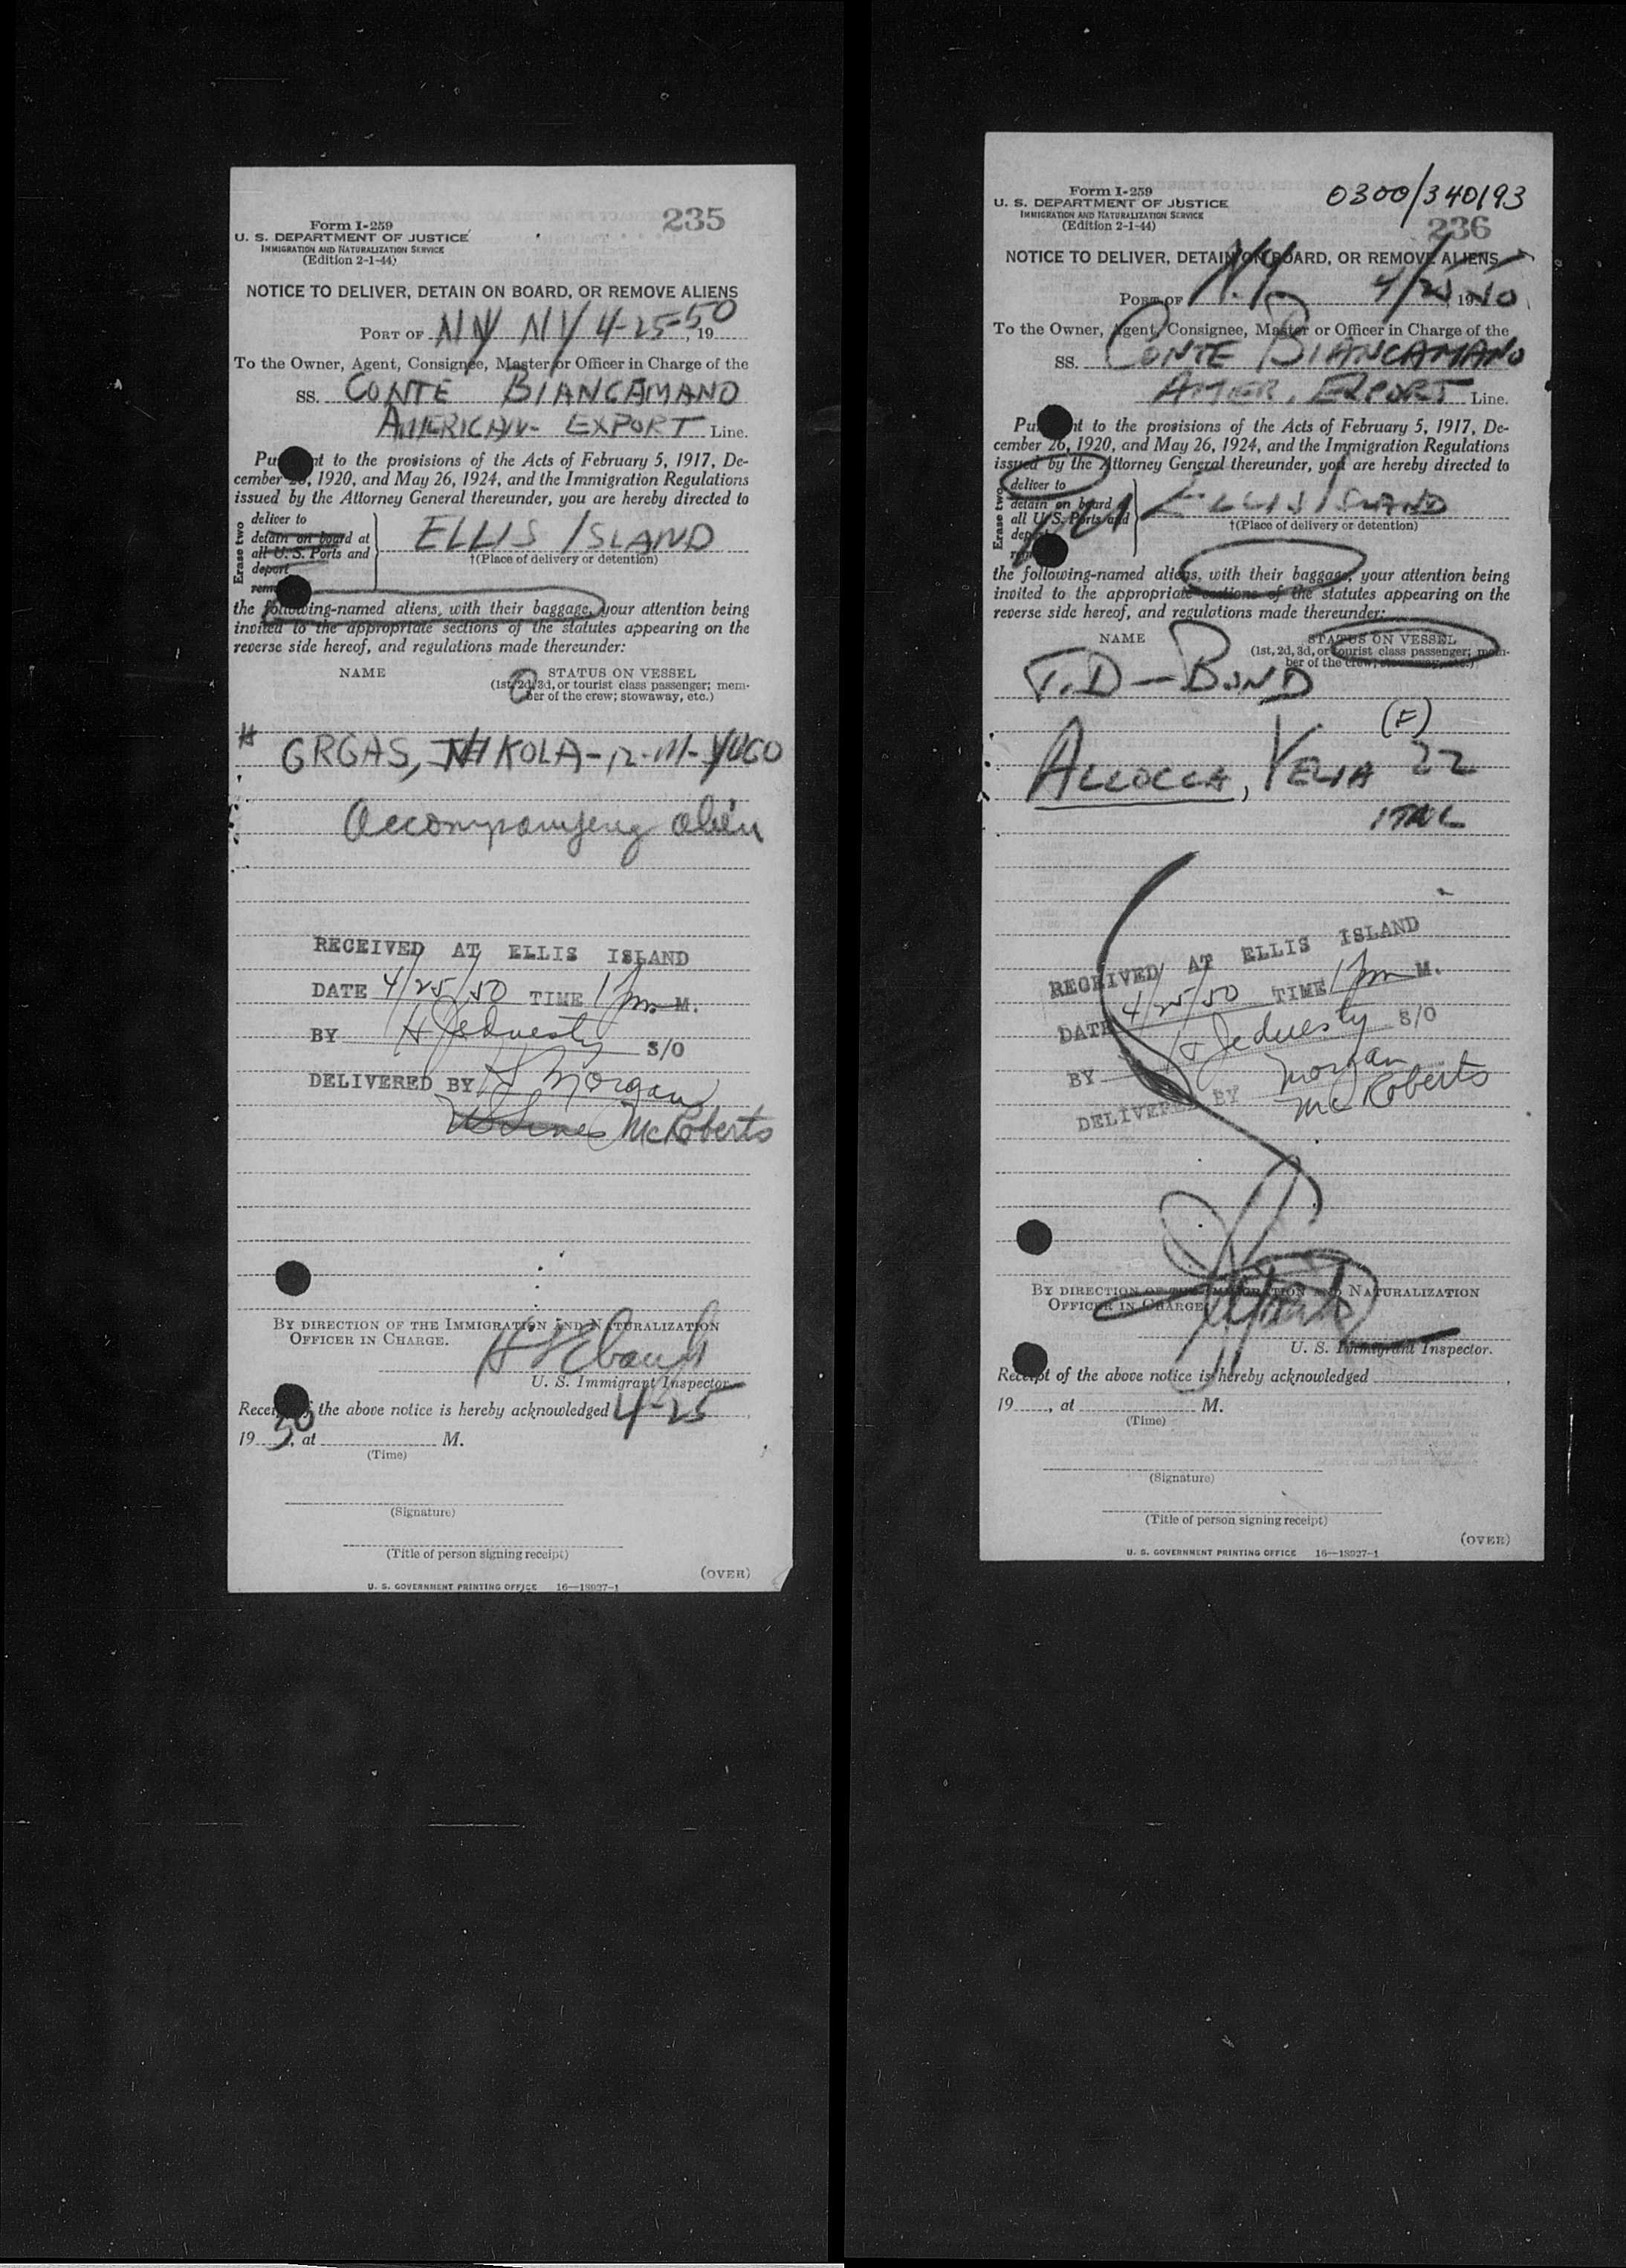 235
Form I-259
U. S. DEPARTMENT OF JUSTICE
IMMIGRATION AND NATURALIZATION SERVICE
(Edition 2-1-44)
NOTICE TO DELIVER, DETAIN ON BOARD, OR REMOVE ALIENS
PORT OF NY NY 4-25-50, 19
To the Owner, Agent, Consignee, Master or Officer in Charge of the
SS. CONTE BIANCAMANO
AMERICAN EXPORT Line.
Pu nt to the provisions of the Acts of February 5, 1917, De-
cember , 1920, and May 26, 1924, and the Immigration Regulations
issued by the Attorney General thereunder, you are hereby directed to
Erase two
deliver to
detain on board at
all U. S. Ports and
deport
rem
ELLIS ISLAND
†(Place of delivery or detention)
the following-named aliens, with their baggage, your attention being
invited to the appropriate sections of the statutes appearing on the
reverse side hereof, and regulations made thereunder:
NAME STATUS ON VESSEL
(1st, 2d, 3d, or tourist class passenger; mem-
ber of the crew; stowaway, etc.)
GRGAS, NIKOLA-12-M-YUGO
Accompanying alien
RECEIVED AT ELLIS ISLAND
DATE 4/25/50 TIME 1 pm M.
BY H S/O
DELIVERED BY Morgan
McRoberts
BY DIRECTION OF THE IMMIGRATION AND NATURALIZATION
OFFICER IN CHARGE.
U. S. Immigrant Inspector.
Recei the above notice is hereby acknowledged 4-25,
19 50, at M.
(Time)
(Signature)
(Title of person signing receipt)
(OVER)
U. S. GOVERNMENT PRINTING OFFICE 16—18927-1
0300/340193
236
Form I-259
U. S. DEPARTMENT OF JUSTICE
IMMIGRATION AND NATURALIZATION SERVICE
(Edition 2-1-44)
NOTICE TO DELIVER, DETAIN ON BOARD, OR REMOVE ALIENS
PORT OF N.Y. 4/25, 1950
To the Owner, Agent, Consignee, Master or Officer in Charge of the
SS. CONTE BIANCAMANO
AMER. EXPORT Line.
Pu nt to the provisions of the Acts of February 5, 1917, De-
cember 26, 1920, and May 26, 1924, and the Immigration Regulations
issued by the Attorney General thereunder, you are hereby directed to
Erase two
deliver to
detain on board
all U. S. Ports and
dep
rem
ELLIS ISLAND
†(Place of delivery or detention)
the following-named aliens, with their baggage, your attention being
invited to the appropriate sections of the statutes appearing on the
reverse side hereof, and regulations made thereunder:
NAME STATUS ON VESSEL
(1st, 2d, 3d, or tourist class passenger; mem-
ber of the crew; stowaway, etc.)
T.D — BOND
ALLOCCA, VELIA (F) 22
ITAL
RECEIVED AT ELLIS ISLAND
DATE 4/25/50 TIME 1 pm M.
BY S/O
DELIVERED BY Morgan
McRoberts
BY DIRECTION OF THE IMMIGRATION AND NATURALIZATION
OFFICER IN CHARGE
U. S. Immigrant Inspector.
Receipt of the above notice is hereby acknowledged ,
19 , at M.
(Time)
(Signature)
(Title of person signing receipt)
(OVER)
U. S. GOVERNMENT PRINTING OFFICE 16—18927-1